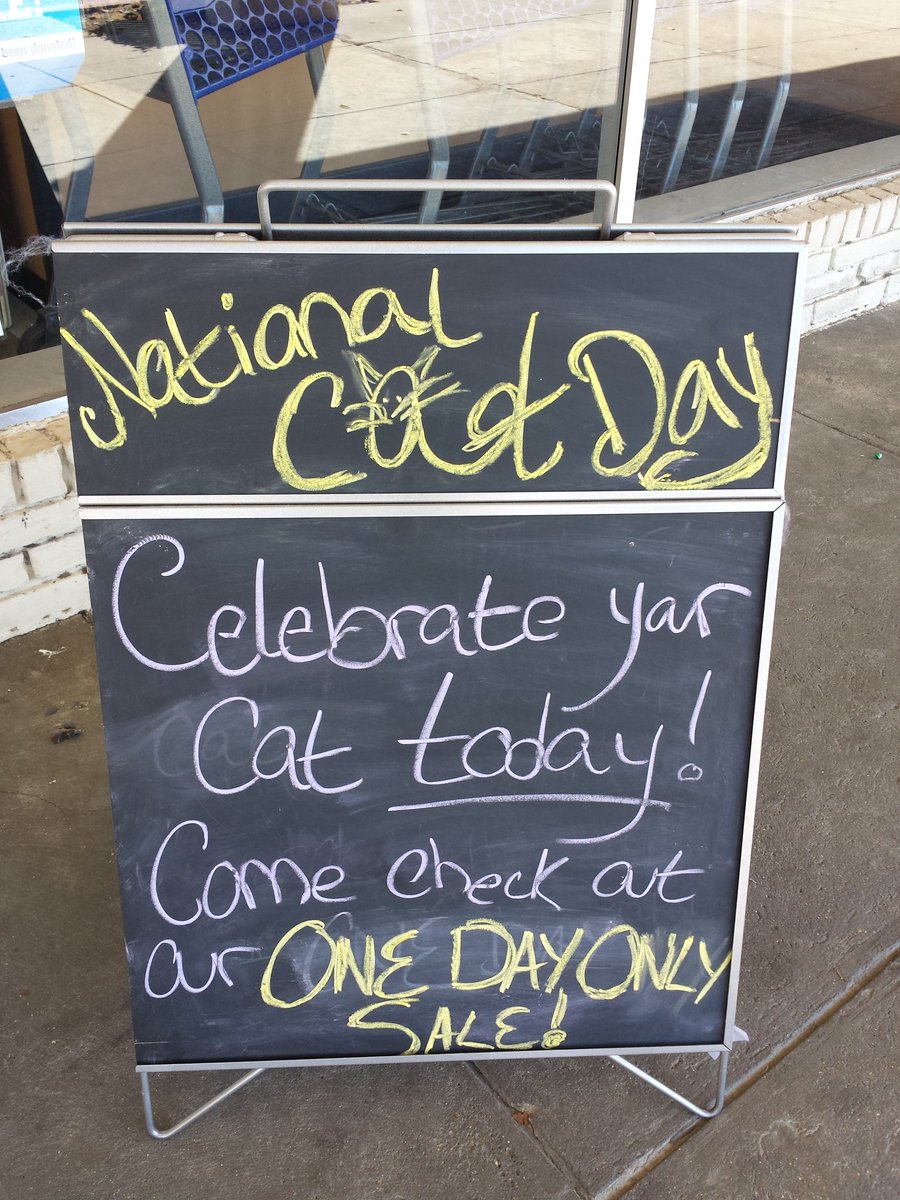 been donated!
National
Cat Day
Celebrate yar
Cat today!
Come check out
our ONE DAY ONLY
SALE!